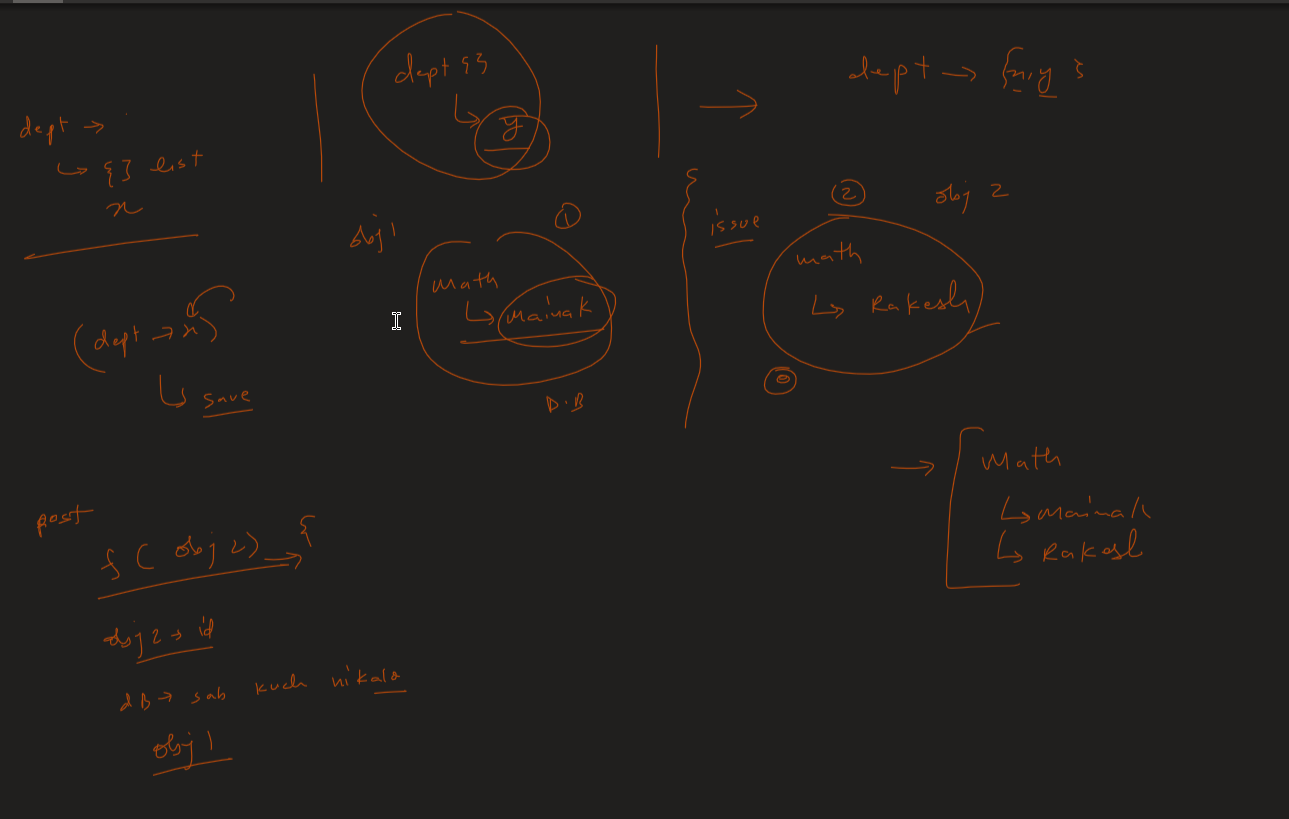 dept →
↳ {} list
x
dept {}
↳ y
→
dept → {x, y}
(dept → x)
↳ save
obj 1
①
math
↳ Mainak
D.B
issue
②
obj 2
math
↳ Rakesh
→ Math
↳ Mainak
↳ Rakesh
post
f ( obj 2) → {
obj 2 → id
dB → sab kuch nikalo
obj 1